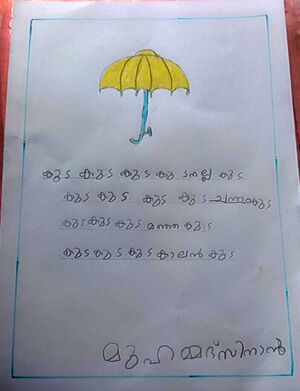 കുട കുട കുട കുടനല്ല കുട
കുട കുട കുട കുട ചന്തകുട
കുട കുട കുട മഞ്ഞ കുട
കുട കുട കുട കാലൻ കുട
മുഹമ്മദ് സിനാൻ